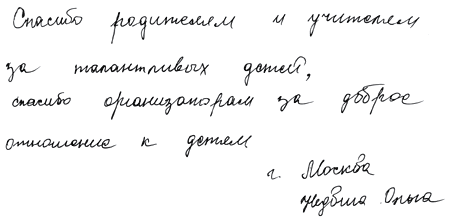 Спасибо родителям и учителям
за талантливых детей,
спасибо организаторам за доброе
отношение к детям
г. Москва
Ольга